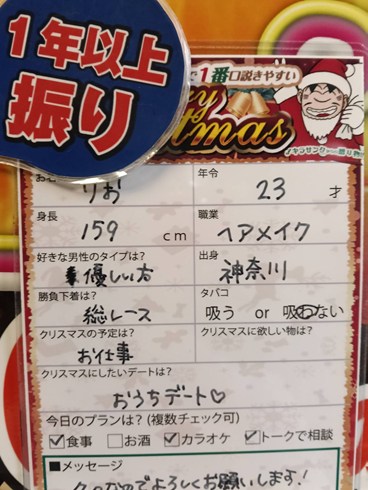 1年以上
振り
で1番口説きやすい
りお
年令
23 才
身長
159 cm
職業
ヘアメイク
好きな男性のタイプは?
優しい方
出身
神奈川
勝負下着は?
総レース
タバコ
吸う or 吸わない
クリスマスの予定は?
お仕事
クリスマスに欲しい物は?
クリスマスにしたいデートは?
おうちデート♡
今日のプランは?(複数チェック可)
☑食事 □お酒 ☑カラオケ ☑トークで相談
■メッセージ
なのでよろしくお願いします!